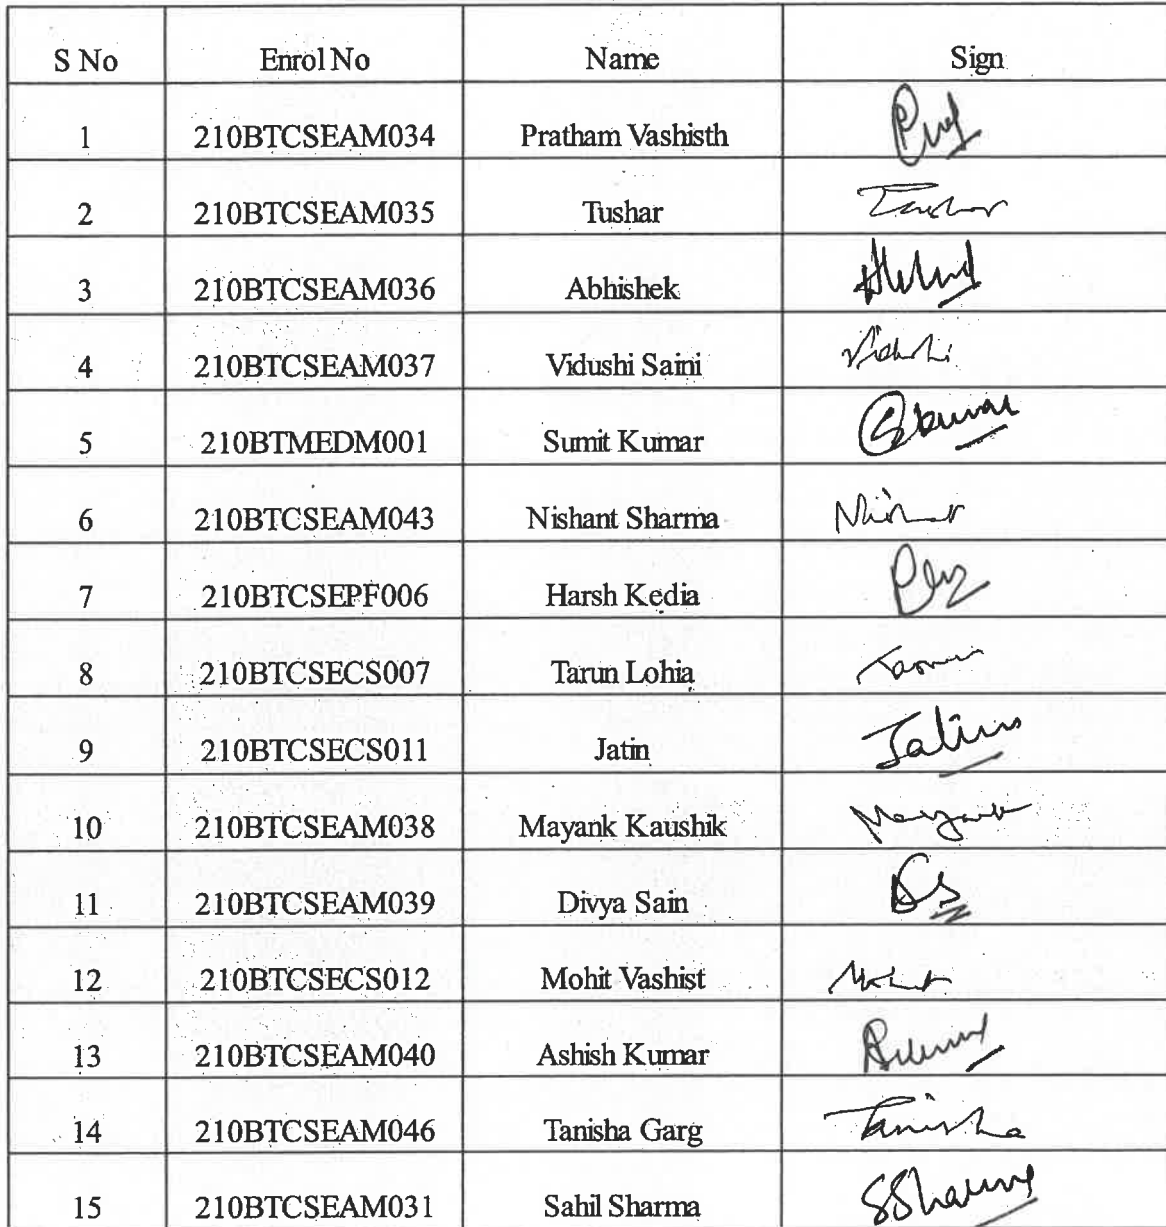 S No Enrol No Name Sign
1 210BTCSEAM034 Pratham Vashisth
2 210BTCSEAM035 Tushar Tushar
3 210BTCSEAM036 Abhishek
4 210BTCSEAM037 Vidushi Saini Vidushi
5 210BTMEDM001 Sumit Kumar Skumar
6 210BTCSEAM043 Nishant Sharma
7 210BTCSEPF006 Harsh Kedia
8 210BTCSECS007 Tarun Lohia
9 210BTCSECS011 Jatin Jatin
10 210BTCSEAM038 Mayank Kaushik Mayank
11 210BTCSEAM039 Divya Sain DS
12 210BTCSECS012 Mohit Vashist Mohit
13 210BTCSEAM040 Ashish Kumar
14 210BTCSEAM046 Tanisha Garg Tanisha
15 210BTCSEAM031 Sahil Sharma SSharma